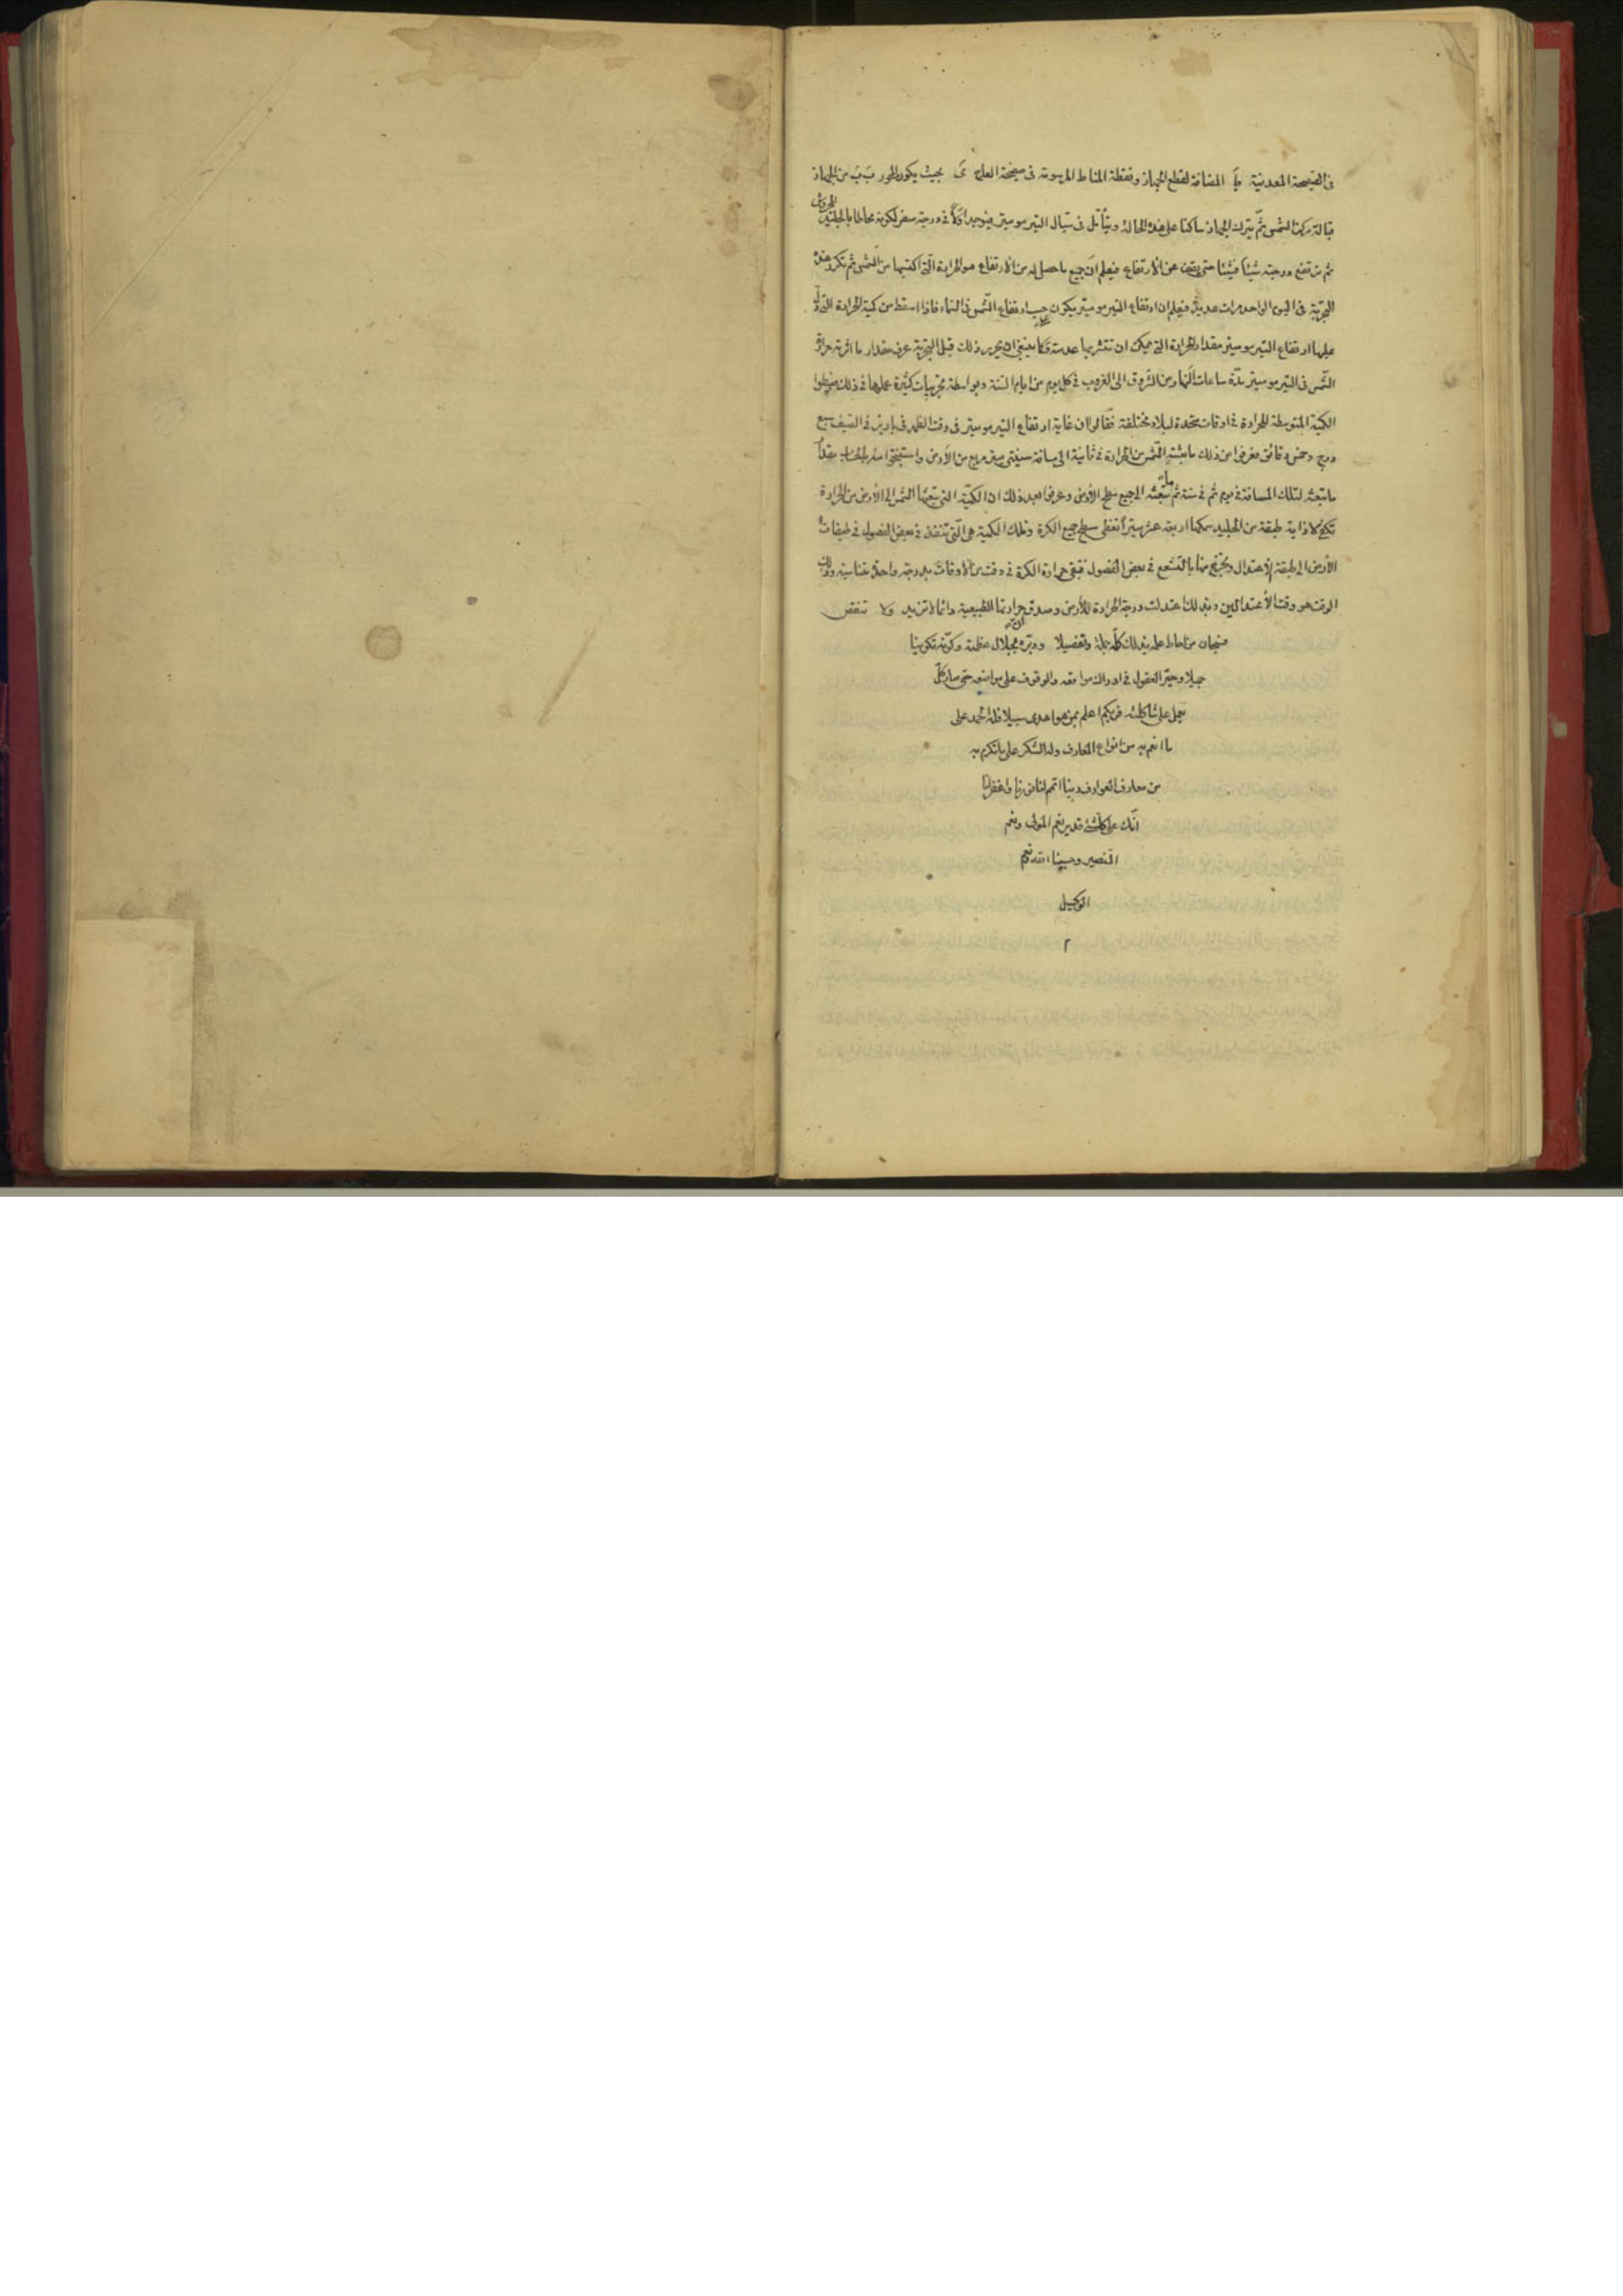 فى الصفيحة المعدنية المضافة لقطع الجهاز ونقطة المناط المرسومة فى صفيحة العاج ىَ بحيث يكون المحور بَ بَ من الجهاز
قبالة مركز الشمس ثمّ يترك الجهاز ساكنا على هذه الحالة ويتأمل فى سيّال التيرموميتر فيوجد اوّلا فى درجة صفر لكونه محاطا بالجليد المجروش
ثم ترتفع درجته شيئا فشيئا حتى يقف عن الارتفاع فيعلم انّ جميع ما حصل له من الارتفاع هو الحرارة الّتى اكتسبها من الشمس ثم تكرر هذه
التجربة فى اليوم الواحد مرات عديدة فيعلم ان ارتفاع التيرموميتر يكون حسب ارتفاع الشّمس فى السّماء فاذا اسقط من كمية الحرارة التى دلّ
عليها ارتفاع التيرموميتر مقدار الحرارة التى يمكن ان تنتشر بها كما ينبغى ان يحرر ذلك قبل التجربة عرف مقدار ما اثرته حرارة
الشّمس فى التيرموميتر مدّة ساعات النّهار من الشروق الى الغروب فى كل يوم من ايام السّنة وبواسطة تجربيات كثيرة عملوها فى ذلك
الكمّية المتوسطة للحرارة فى اوقات متحدة لبلاد مختلفة فقالوا ان غاية ارتفاع التيرموميتر فى وقت الظهر فى باريز فى الصّيف سبع
درج وخمس دقائق فعرفوا من ذلك ما تبثّه الشّمس من الحرارة فى ثانية الى مسافة سينتى ميتر مربع من الأرض واستنتجوا منه بالحساب مقدار
ما تبعثه لتلك المسافة فى يوم ثم فى سنة ثم ما تبعثه الى جميع سطح الأرض وعرفوا بعد ذلك ان الكمّية التى تبعثها الشّمس الى الأرض من الحرارة
تكفى لاذابة طبقة من الجليد سمكها اربعة عشر ميترا تغطى سطح جميع الكرة وتلك الكمية هى الّتى تنفذ فى بعض الفصول فى طبقات
الأرض الى طبقة الأعتدال ويخرج منها بالتشعع فى بعض الفصول فتبقى حرارة الكرة فى وقت من الأوقات بدرجة واحدة متناسبة وذلك
الوقت هو وقت الأعتدالين وبذلك اعتدلت درجة الحرارة للأرض وصدق حرارتها الطّبيعية دائما لا تزيد ولا تنقص
فسبحان من احاط علمه بذلك كلّه جملة وتفصيلا ودبّره بجلال عظمته وكوّنه تكوينا
جميلا وحيّر العقول فى ادراك مواقعه والوقوف على مواضعه حتى صار كلّ
يعمل على شاكلته فربكم اعلم بمن هو اهدى سبيلا فله نحمد على
ما انعم به من انواع المعارف وله الشكر على ما تكرم به
من معارف العوارف ربّنا اتمم لنا نورنا واغفر لنا
انّك على كلّ شئ قدير نعم المولى ونعم
النّصير وحسبنا اللّه ونعم
الوكيل
م